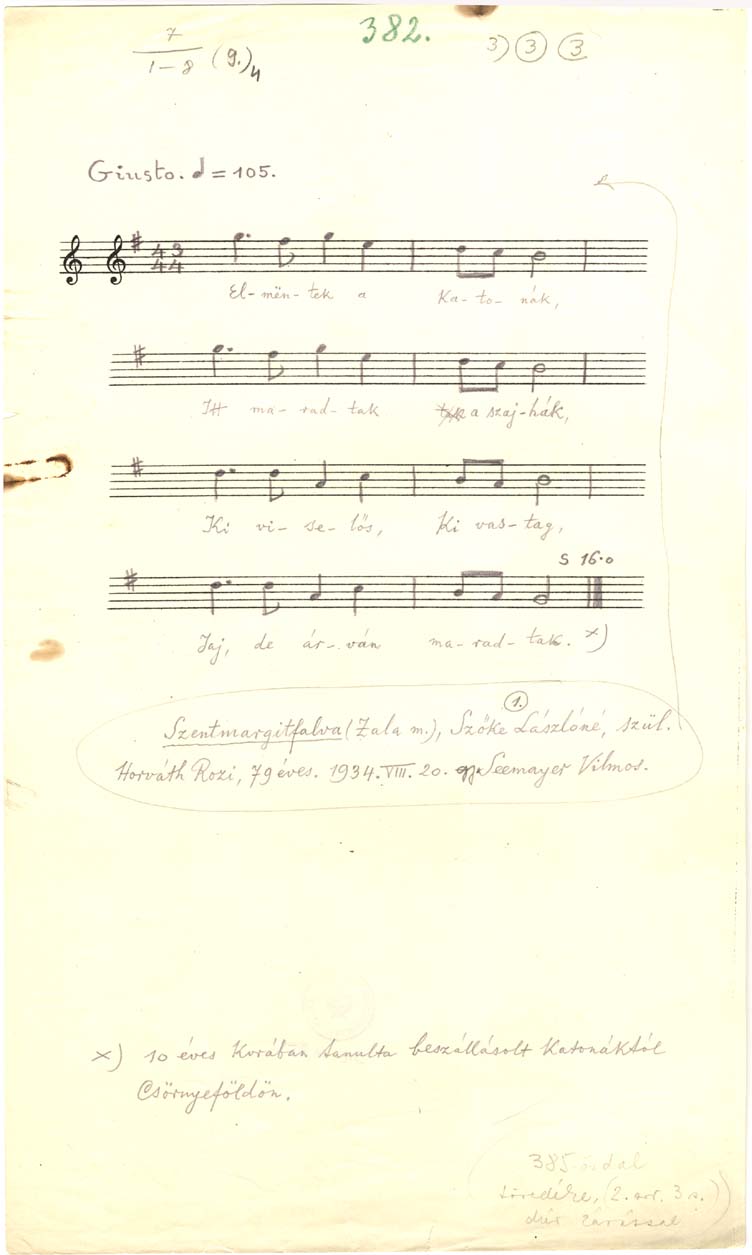 382.
7
1-8 (9.)4
3) 3 3
Giusto. = 105.
4 3
4 4
El- mën- tek a Ka- to- nák,
Itt ma- rad- tak a szaj- hák,
Ki vi- se- lős, Ki vas- tag,
S 16.0
Jaj, de ár- ván ma- rad- tak. x)
1.
Szentmargitfalva (Zala m.), Szőke Lászlóné, szül.
Horváth Rozi, 79 éves. 1934. VIII. 20. gy. Seemayer Vilmos.
x) 10 éves Korában tanulta beszállásolt Katonáktól
Csörnyeföldön.
385 oldal
töredéke, (2. sor. 3 s.)
dúr zárással